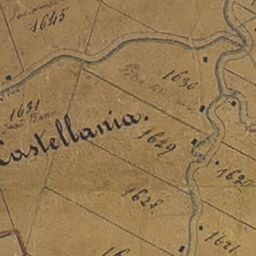 1645
1630
1631
Castellania.
1629
1628
1620
1621
16